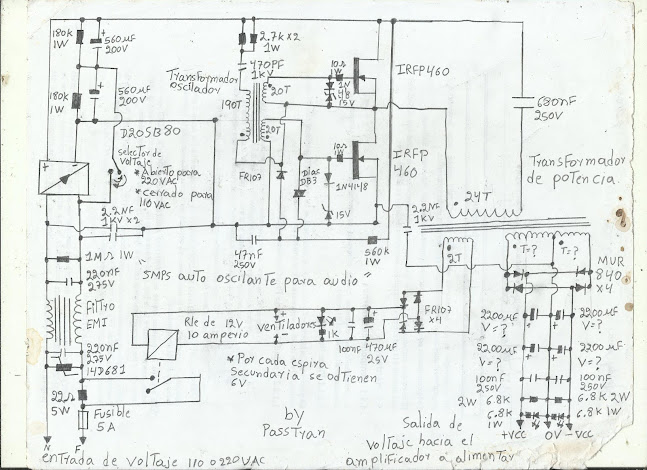 180k
1W
560µF
200V
2.7k x2
1W
470PF
1KV
10Ω
1W
1N
48
15V
IRFP460
Transformador
oscilador
190T
20T
20T
180k
1W
560µF
200V
680nF
250V
D20SB80
selector de
voltaje
* Abierto para
220VAC
* cerrado para
110VAC
FR107
Diac
DB3
10Ω
1W
1N4148
15V
IRFP
460
Transformador
de potencia.
24T
2.2NF
1KV x2
2.2NF
1KV
47nF
250V
560k
1W
1MΩ 1W
220nF
275V
"SMPS auto oscilante para audio"
2T
T=?
T=?
MUR
840
x4
Filtro
EMI
Rle de 12V
10 amperio
Ventiladores
1K
100nF
470µF
25V
FR107
x4
2200µF
V=?
2200µF
V=?
220nF
275V
14D681
* Por cada espira
Secundaria se odtienen
6V
2200µF
V=?
2200µF
V=?
100nF
250V
100nF
250V
22Ω
5W
2W 6.8K
6.8K 2W
6.8K
1W
6.8K 1W
Fusible
5A
by
PassTran
Salida de
voltaje hacia el
amplificador a alimentar
+VCC 0V -VCC
N F
entrada de voltaje 110 o 220VAC